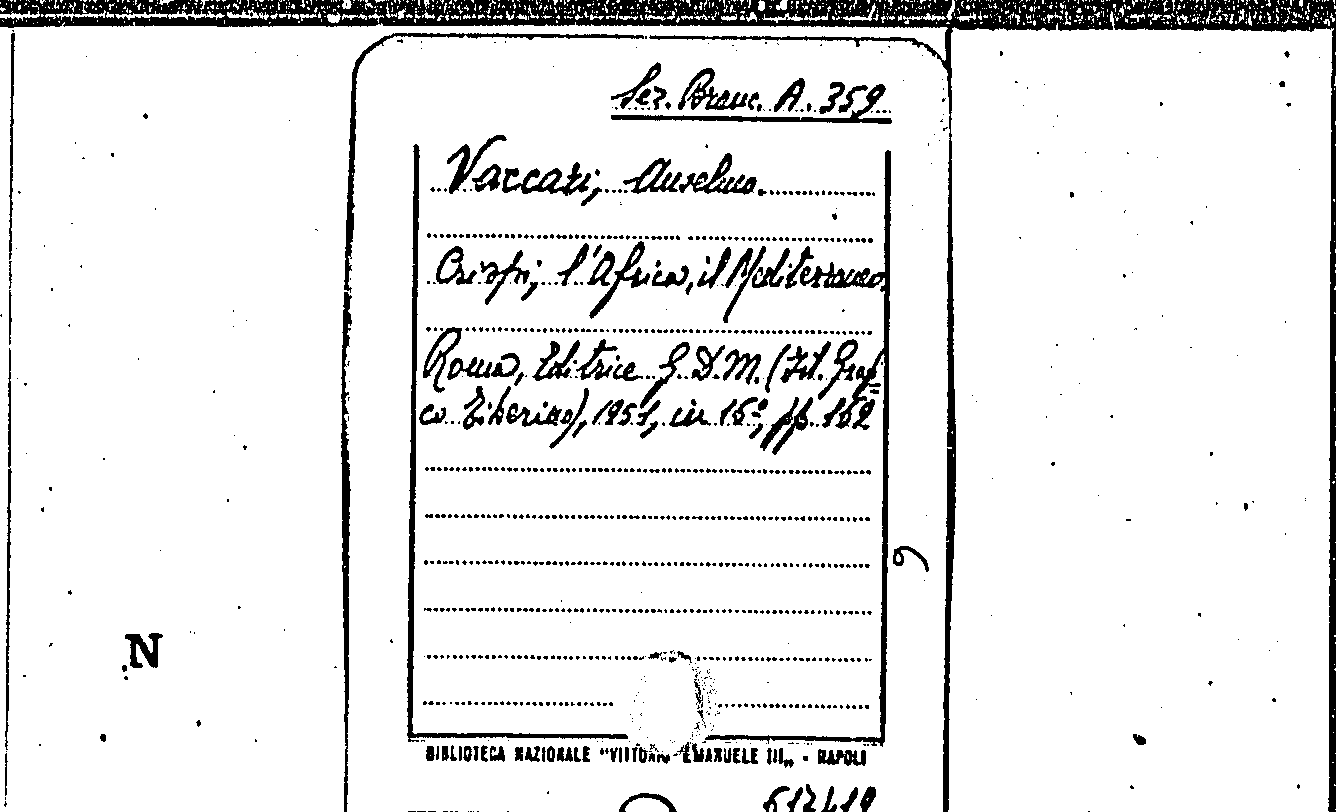 Sez. Branc. A. 359
Vaccari, Anselmo.
Crispi, l'Africa, il Mediterraneo.
Roma, Editrice G.D.M. (Tit. Graf=
co Tiberino), 1951, in 16º, pp. 162
9
N
BIBLIOTECA NAZIONALE "VITTORIO EMANUELE III„ - NAPOLI